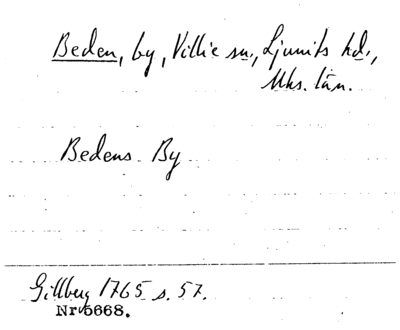 Beden, by, Villie sn., Ljunits hd.,
Mhs. län.
Bedens By
Gillberg 1765 s. 57.
Nr 5668.